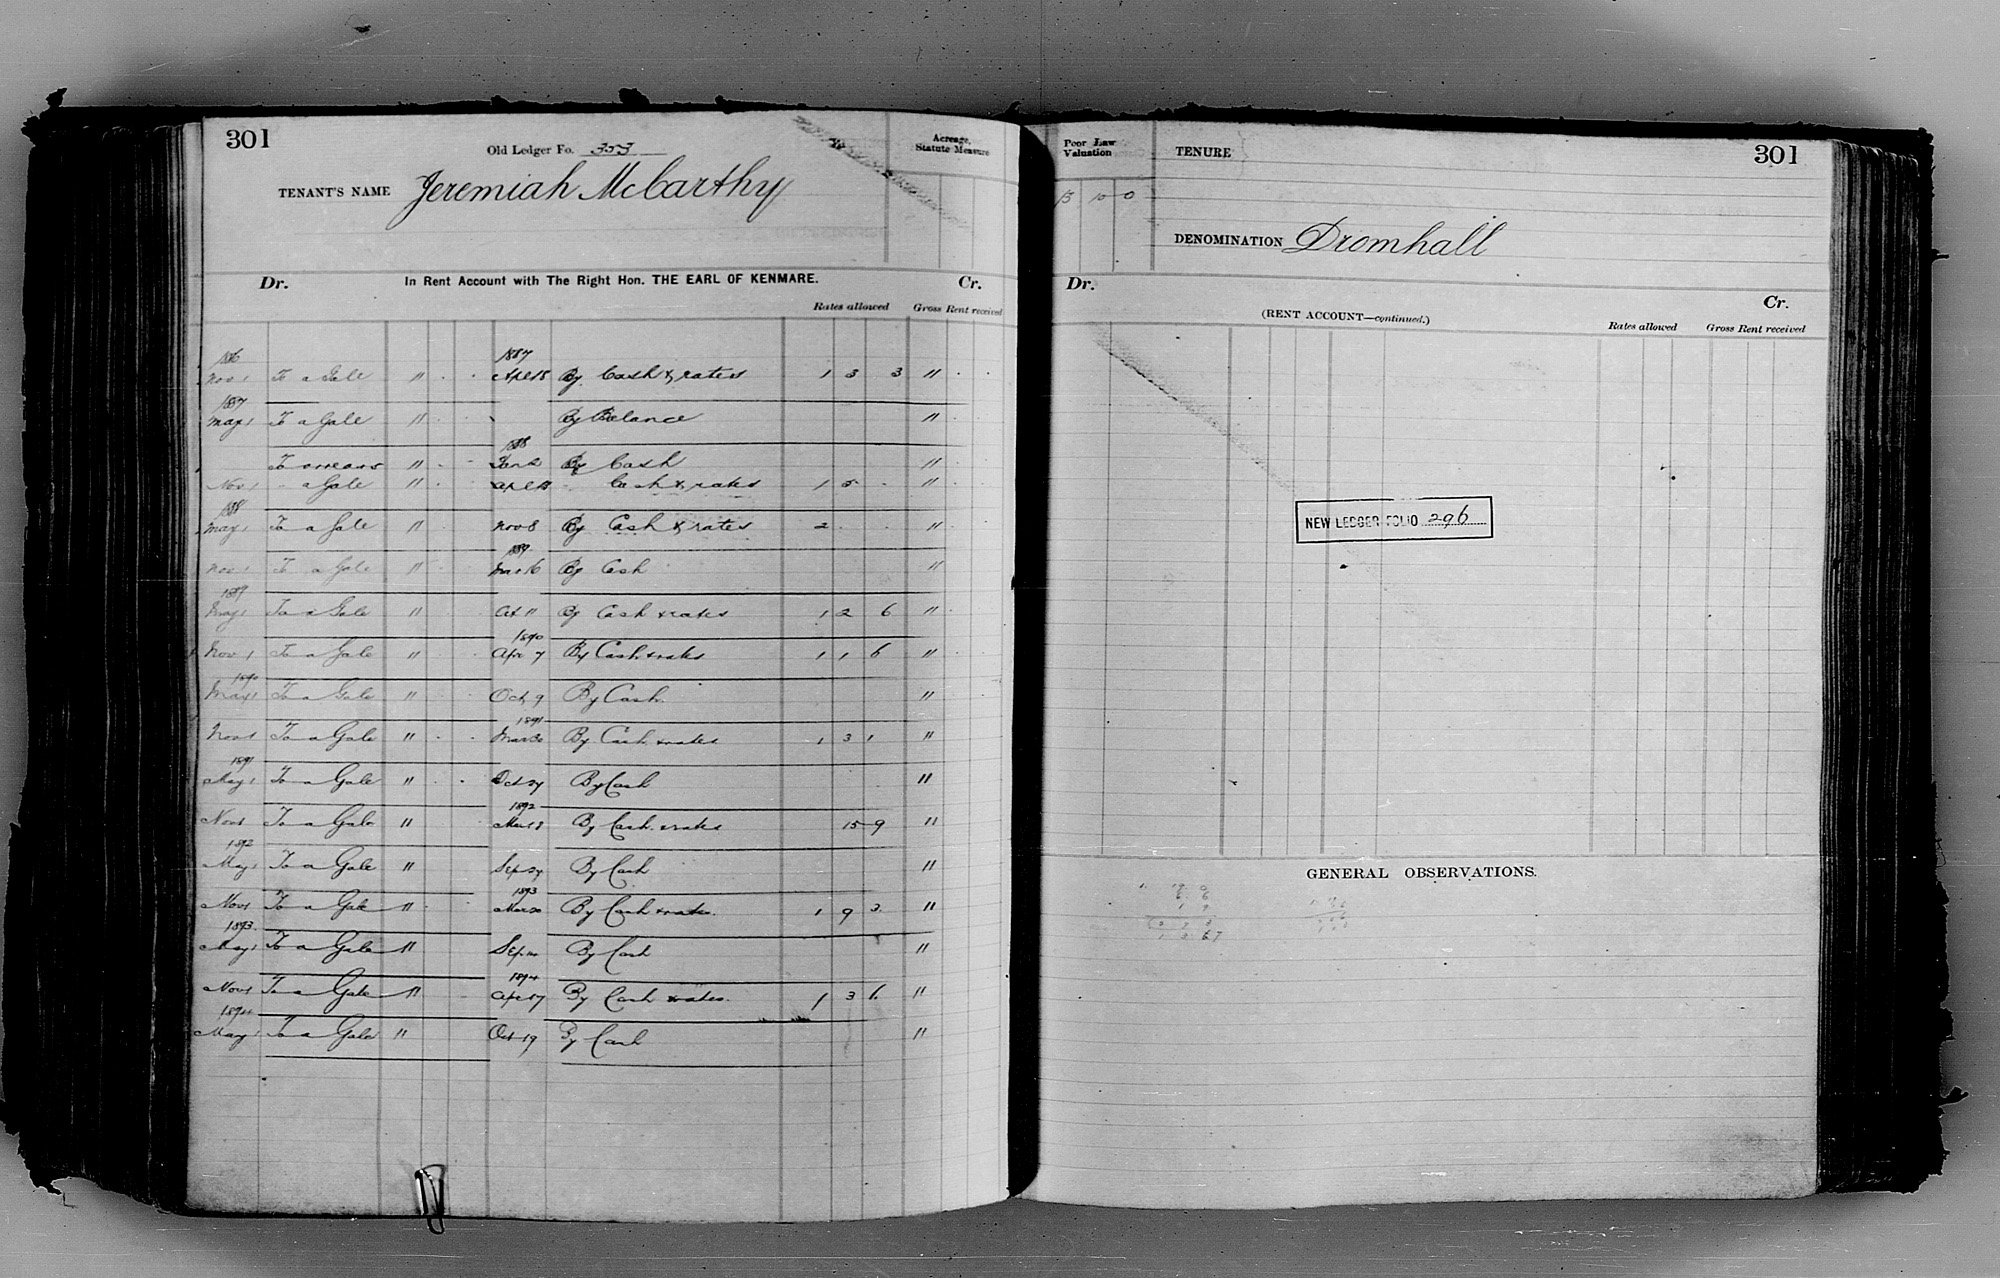 301
Old Ledger Fo. 353
Acreage, Statute Measure
TENANT'S NAME Jeremiah McCarthy
Dr. In Rent Account with The Right Hon. THE EARL OF KENMARE. Cr.
Rates allowed Gross Rent received
1886 1887
Nov 1 To a Gale " Apl 18 By Cash & rates 1 3 3 "
1887
May 1 To a Gale " By Balance "
1888
To arrears " Jan 2 By Cash "
Nov 1 " a Gale " Apl 18 " Cash & rates 1 5 - "
1888
May 1 To a Gale " Nov 8 By Cash & rates 2 - - "
1889
Nov 1 To a Gale " Mar 16 By Cash "
1889
May 1 To a Gale " Oct 11 By Cash & rates 1 2 6 "
1890
Nov 1 To a Gale " Apr 7 By Cash & rates 1 1 6 "
1890
May 1 To a Gale " Oct 9 By Cash "
1891
Nov 1 To a Gale " Mar 30 By Cash & rates 1 3 1 "
1891
May 1 To a Gale " Oct 27 By Cash "
1892
Nov 1 To a Gale " Mar 18 By Cash & rates 15 9 "
1892
May 1 To a Gale " Sep 27 By Cash "
1893
Nov 1 To a Gale " Mar 20 By Cash & rates. 1 9 3 "
1893
May 1 To a Gale " Sep By Cash "
1894
Nov 1 To a Gale " Apr 17 By Cash & rates. 1 3 6 "
1894
May 1 To a Gale " Oct 19 By Cash "
Poor Law Valuation
TENURE
301
10 0
DENOMINATION Dromhall
Dr. Cr.
(RENT ACCOUNT—continued.)
Rates allowed Gross Rent received
NEW LEDGER FOLIO 296
GENERAL OBSERVATIONS.